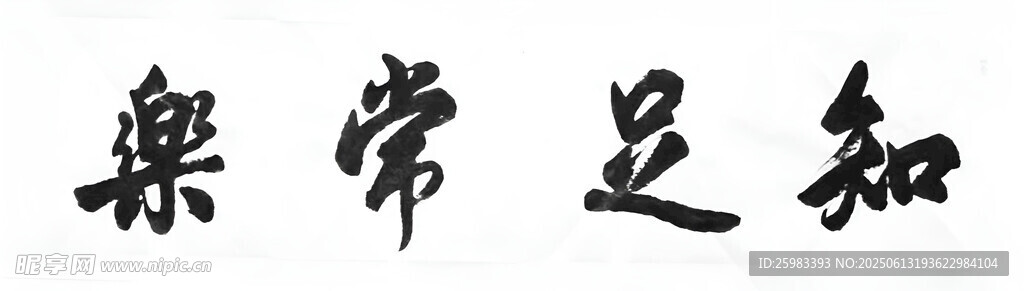 知足常樂
昵享网 www.nipic.cn
ID:25983393 NO:20250613193622984104